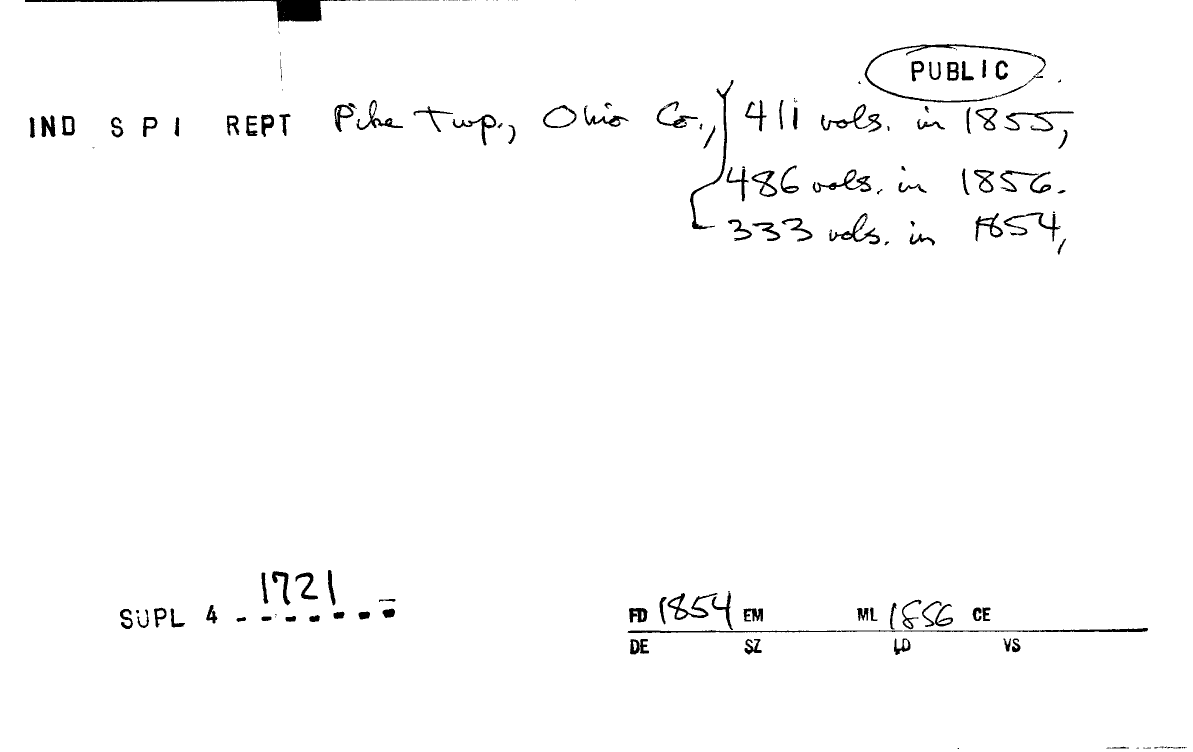 PUBLIC
IND S P I REPT Pike Twp., Ohio Co., 411 vols. in 1855,
486 vols. in 1856.
333 vols. in 1854,
1721
SUPL 4 - - - - - - -
FD 1854 EM ML 1856 CE
DE SZ LD VS